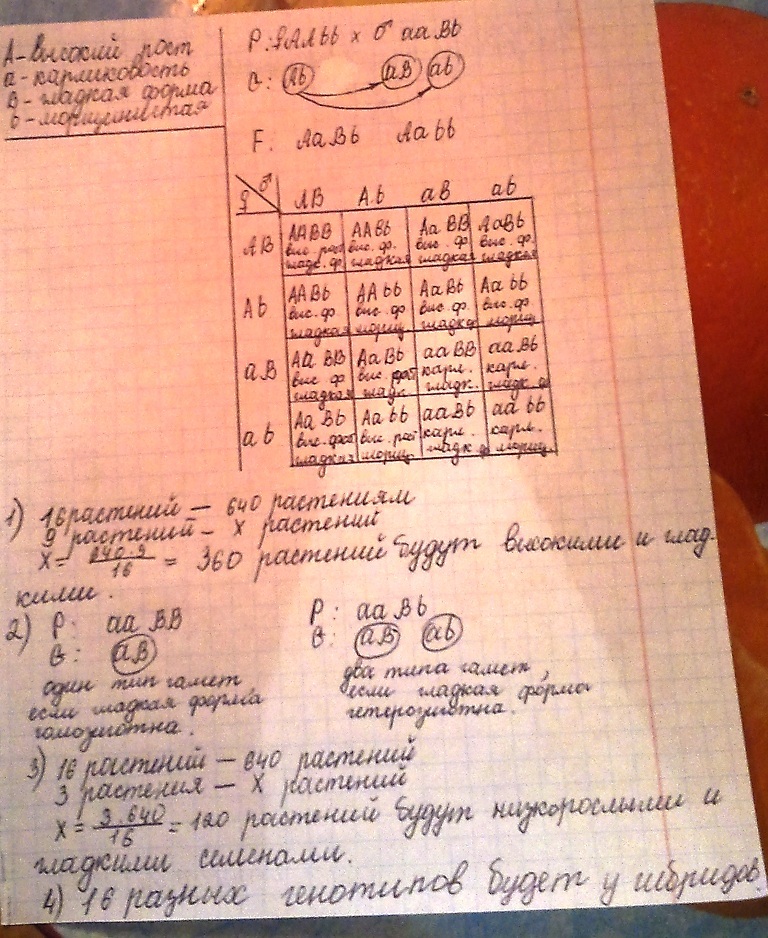 А - высокий рост
а - карликовость
В - гладкая форма
в - морщинистая
P: ♀ААbb x ♂ ааBb
G: Ab aB ab
F: AaBb Aabb
♀ ♂ AB Ab aB ab
AB AABB AABb AaBB AaBb
выс. рост выс. ф. выс. ф выс. ф.
гладк. ф. гладкая гладкая гладкая
Ab AABb AAbb AaBb Aabb
выс. ф. выс. ф выс. ф выс. ф
гладкая морщ. гладк ф морщ.
aB AaBB AaBb aaBB aaBb
выс ф выс. рост карл. карл.
гладкая гладк. гладк. гладк. ф
ab AaBb Aabb aaBb aabb
выс. рост выс. рост карл. карл.
гладкая морщ. гладк ф морщ.
1) 16 растений — 640 растениям
9 растений - х растений
х = 640·9/16 = 360 растений будут высокими и глад-
кими.
2) P: aaBB P: aaBb
G: aB G: aB ab
один тип гамет два типа гамет,
если гладкая форма если гладкая форма
гомозиготна. гетерозиготна.
3) 16 растений — 640 растений
3 растения — х растений
х = 3·640/16 = 120 растений будут низкорослыми и
гладкими семенами.
4) 16 разных генотипов будет у гибридов